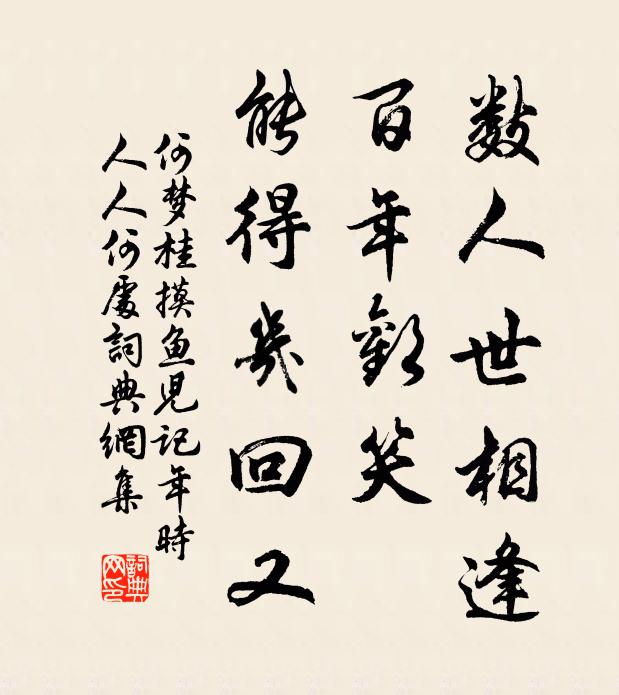 数人世相逢
百年歡笑
能得幾回又
何梦桂摸鱼児记年時
人人何處詞典網集
詞典
网印